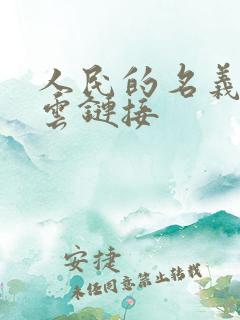 人民的名義
雲鏈接
安捷
未经同意禁止转载